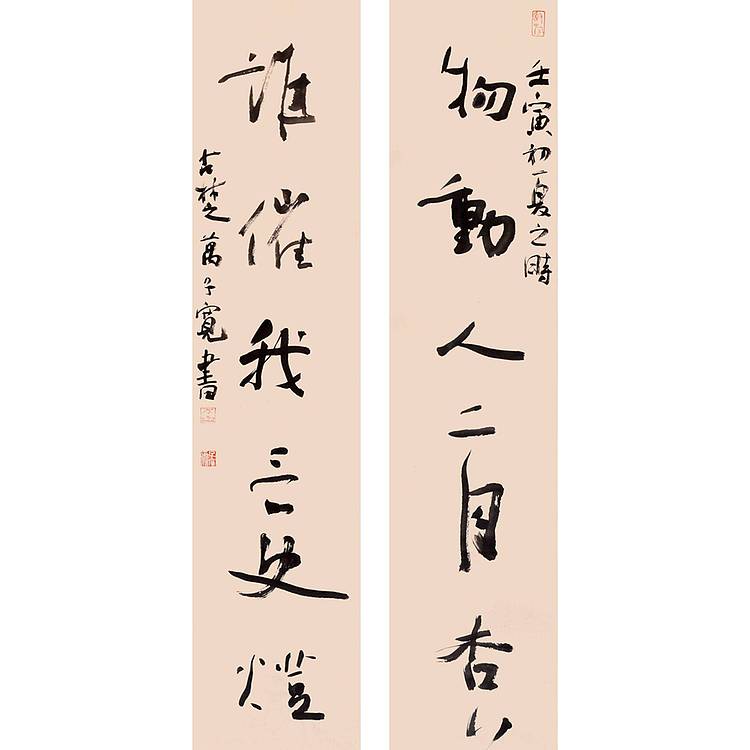 壬寅初夏之時
物動人二月杏
誰催我三更燈
古楚萬子寬書